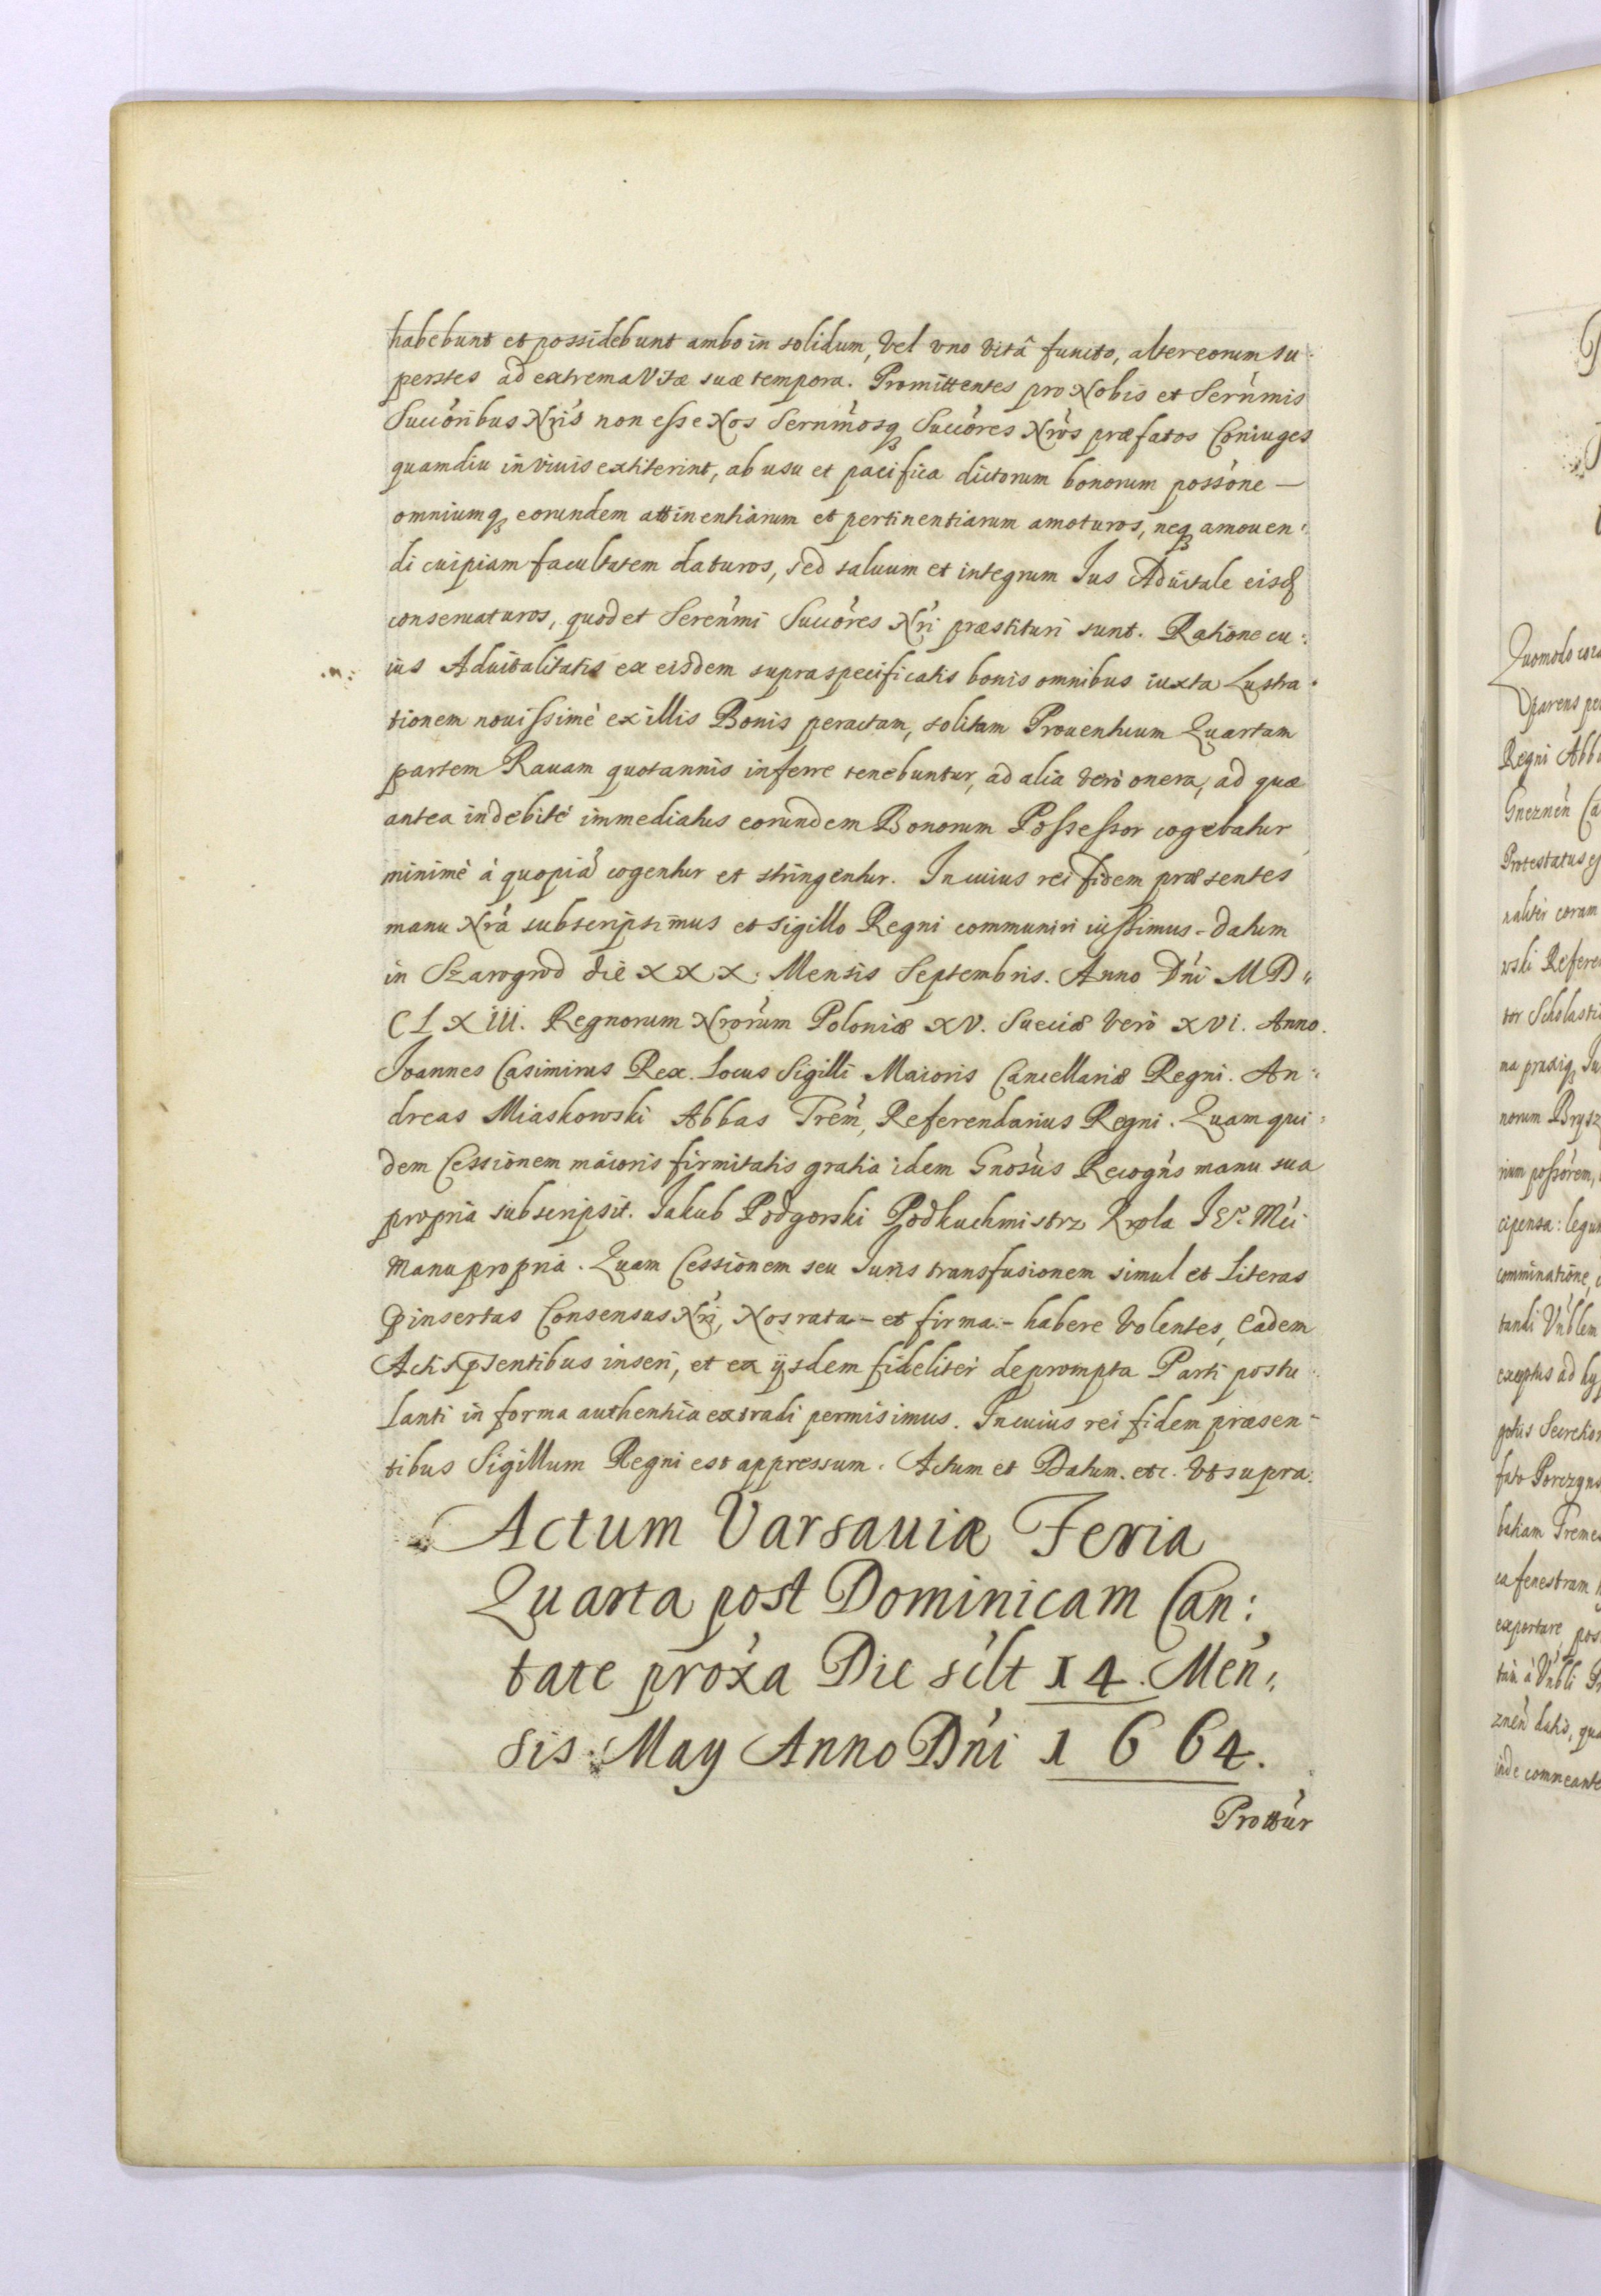 habebunt et possidebunt ambo in solidum, vel uno vitâ functo, alter eorum su:
perstes ad extrema Vitæ suæ tempora. Promittentes pro Nobis et Serńmis
Succóribus Nrís non esse Nos Sernmósq Succóres Nrós præfatos Coniuges
quamdiu in viuis extiterint, ab usu et pacifica dictorum bonorum possóne —
omniumq eorundem attinentiarum et pertinentiarum amoturos, neq amouen:
di cuipiam facultatem daturos, sed saluum et integrum Ius Aduitale eisd
conseruaturos, quod et Serenḿi Succóres Nŕi præstituri sunt. Ratione cu:
ius Aduitalitatis ex eisdem supraspecificatis bonis omnibus iuxta Lustra:
tionem nouissimè ex illis Bonis peractam, solitam Prouentuum Quartam
partem Rauam quotannis inferre tenebuntur, ad alia verò onera, ad quæ
antea indebitè immediatus eorundem Bonorum Possessor cogebatur
minimè à quopiā cogentur et stringentur. In cuius rei fidem præsentes
manu Nrá subscripsimus et Sigillo Regni communiri iussimus. Datum
in Szarogrod die XXX. Mensis Septembris. Anno Dńi MD"
CLXIII. Regnorum Nrórum Poloniæ XV. Sueciæ verò XVI. Anno.
Joannes Casimirus Rex. Locus Sigilli Maioris Cancellariæ Regni. An:
dreas Miaskowski Abbas Treḿ, Referendarius Regni. Quam qui:
dem Cessionem maioris firmitatis gratia idem Gnosús Recogńs manu sua
propria subscripsit. Jakub Podgorski Podkuchmistrz Krola Je° Mći
Manu propria. Quam Cessionem seu Iuris transfusionem simul et Literas
pinsertas Consensus Nri, Nos rata - et firma - habere volentes, eadem
Actis psentibus inseri, et ex ijsdem fideliter deprompta Parti postu:
lanti in forma authentica extradi permisimus. In cuius rei fidem præsen-
tibus Sigillum Regni est appressum. Actum et Datum. etc. Vt supra.
Actum Varsauiæ Feria
Quarta post Dominicam Can:
tate próxa Die sílt 14. Meń:
sis May Anno Dńi 1664.
Prottúr